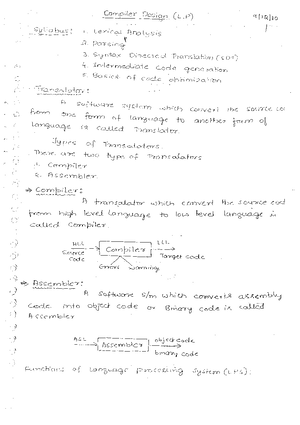 Compiler Design (L.P)
Syllabus: 1. Lexical Analysis
2. Parsing
3. Syntax Directed Translation (SDT)
4. Intermediate Code generation
5. Basics of code optimization
Translator:
A software system which convert the source co
from one form of language to another form of
language is called Translator.
Types of Translators:
There are two type of Translators
1. Compiler
2. Assembler.
→ Compiler:
A translator which convert the source cod
from high level language to low level language is
called Compiler.
HLL
Source code
Compiler
LLL
Target code
Errors Warning
→ Assembler:
A software s/m which converts assembly
Code into object code or Binary code is called
Assembler
ASL
Assembler
object code
binary code
Functions of Language Processing System (LPS):